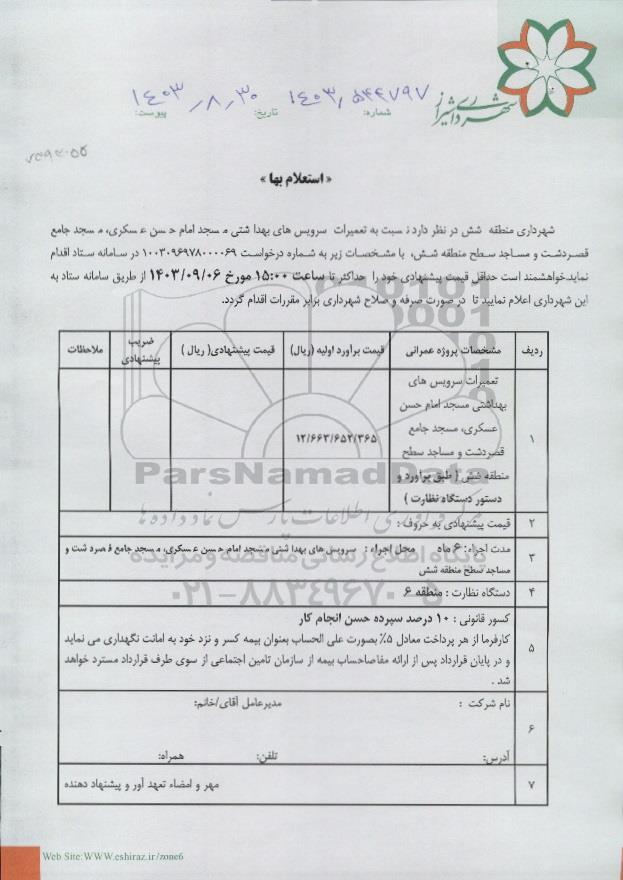 شهرداری شیراز
شماره: ۱۴۰۳/۵۴۴۷۹۷
تاریخ: ۱۴۰۳/۸/۳۰
پیوست:
« استعلام بها »
شهرداری منطقه شش در نظر دارد نسبت به تعمیرات سرویس های بهداشتی مسجد امام حسن عسکری، مسجد جامع
قصردشت و مساجد سطح منطقه شش، با مشخصات زیر به شماره درخواست ۱۰۰۳۰۹۶۹۷۸۰۰۰۰۶۹ در سامانه ستاد اقدام
نماید.خواهشمند است حداقل قیمت پیشنهادی خود را حداکثر تا ساعت ۱۵:۰۰ مورخ ۱۴۰۳/۰۹/۰۶ از طریق سامانه ستاد به
این شهرداری اعلام نمایید تا در صورت صرفه و صلاح شهرداری برابر مقررات اقدام گردد.
ردیف مشخصات پروژه عمرانی قیمت برآورد اولیه (ریال) قیمت پیشنهادی( ریال ) ضریب پیشنهادی ملاحظات
۱ تعمیرات سرویس های
بهداشتی مسجد امام حسن
عسکری، مسجد جامع
قصردشت و مساجد سطح
منطقه شش ( طبق برآورد و
دستور دستگاه نظارت )
۱۲/۶۶۳/۶۵۲/۳۶۵
۲ قیمت پیشنهادی به حروف :
۳ مدت اجراء: ۶ ماه محل اجراء : سرویس های بهداشتی مسجد امام حسن عسکری، مسجد جامع قصردشت و
مساجد سطح منطقه شش
۴ دستگاه نظارت : منطقه ۶
۵ کسور قانونی : ۱۰ درصد سپرده حسن انجام کار
کارفرما از هر پرداخت معادل ۵٪ بصورت علی الحساب بعنوان بیمه کسر و نزد خود به امانت نگهداری می نماید
و در پایان قرارداد پس از ارائه مفاصاحساب بیمه از سازمان تامین اجتماعی از سوی طرف قرارداد مسترد خواهد
شد .
۶ نام شرکت : مدیرعامل آقای/خانم:
آدرس: تلفن: همراه:
۷ مهر و امضاء تعهد آور و پیشنهاد دهنده
ParsNamadData
مرکز فرآوری اطلاعات پارس نماد داده ها
پایگاه اطلاع رسانی مناقصه و مزایده
۰۲۱-۸۸۳۴۹۶۷۰-۵
Web Site:WWW.eshiraz.ir/zone6